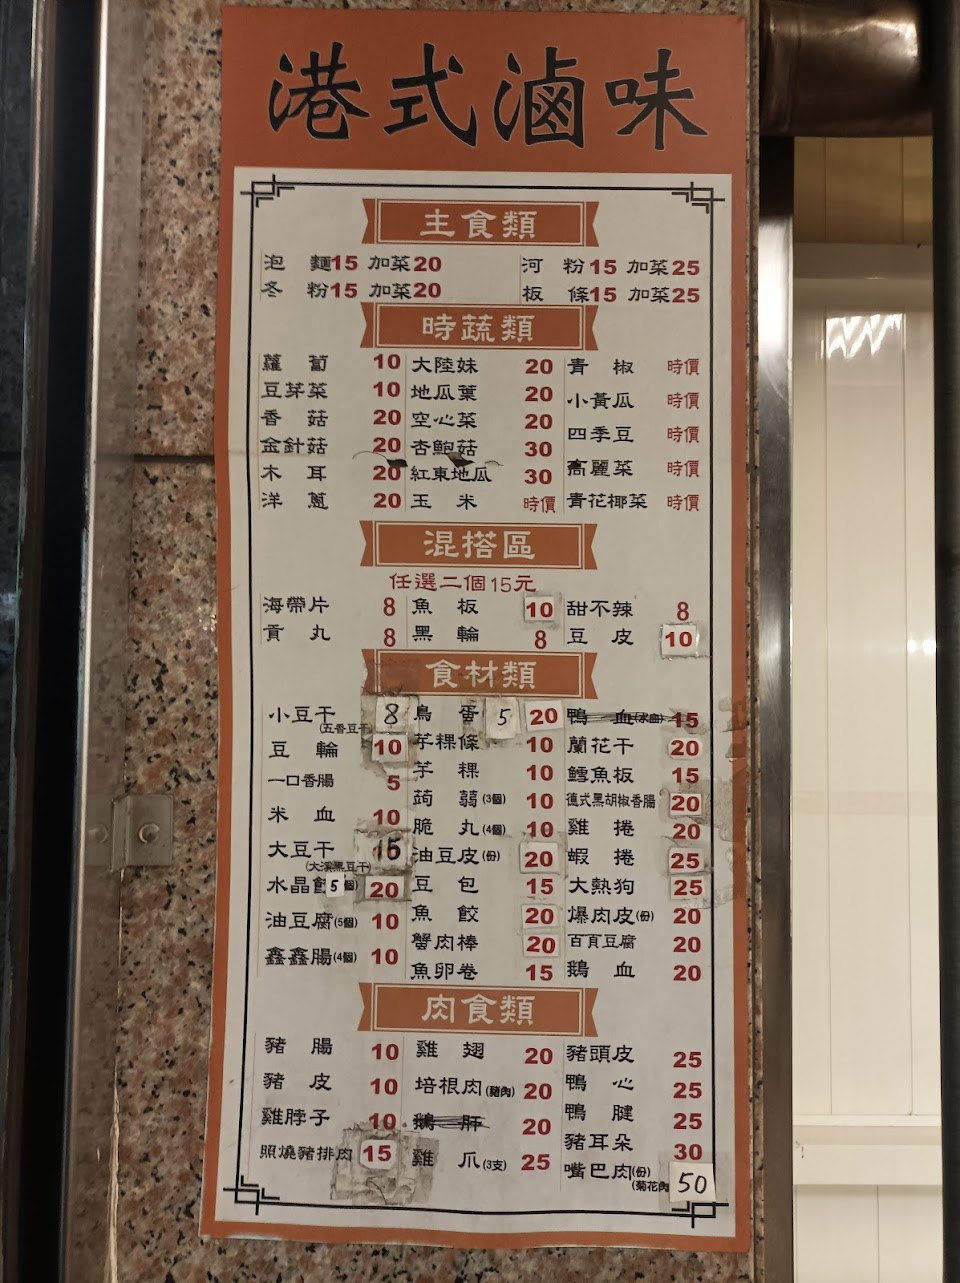 港式滷味
主食類
泡麵15 加菜20 河粉15 加菜25
冬粉15 加菜20 板條15 加菜25
時蔬類
蘿蔔 10 大陸妹 20 青椒 時價
豆芽菜 10 地瓜葉 20 小黃瓜 時價
香菇 20 空心菜 20 四季豆 時價
金針菇 20 杏鮑菇 30 高麗菜 時價
木耳 20 紅東地瓜 30 青花椰菜 時價
洋蔥 20 玉米 時價
混搭區
任選二個15元
海帶片 8 魚板 10 甜不辣 8
貢丸 8 黑輪 8 豆皮 10
食材類
小豆干(五香豆干) 8
豆輪 10
一口香腸 5
米血 10
大豆干(大溪黑豆干) 15
水晶餃(5個) 20
油豆腐(5個) 10
鑫鑫腸(4個) 10
鳥蛋 5 20
芋粿條 10
芋粿 10
蒟蒻(3個) 10
脆丸(4個) 10
油豆皮(份) 20
豆包 15
魚餃 20
蟹肉棒 20
魚卵卷 15
鴨血(冰血) 15
蘭花干 20
鱈魚板 15
德式黑胡椒香腸 20
雞捲 20
蝦捲 25
大熱狗 25
爆肉皮(份) 20
百頁豆腐 20
鵝血 20
肉食類
豬腸 10
豬皮 10
雞脖子 10
照燒豬排肉 15
雞翅 20
培根肉(豬肉) 20
鵝肝 20
雞爪(3支) 25
豬頭皮 25
鴨心 25
鴨腱 25
豬耳朵 30
嘴巴肉(份)(菊花肉) 50